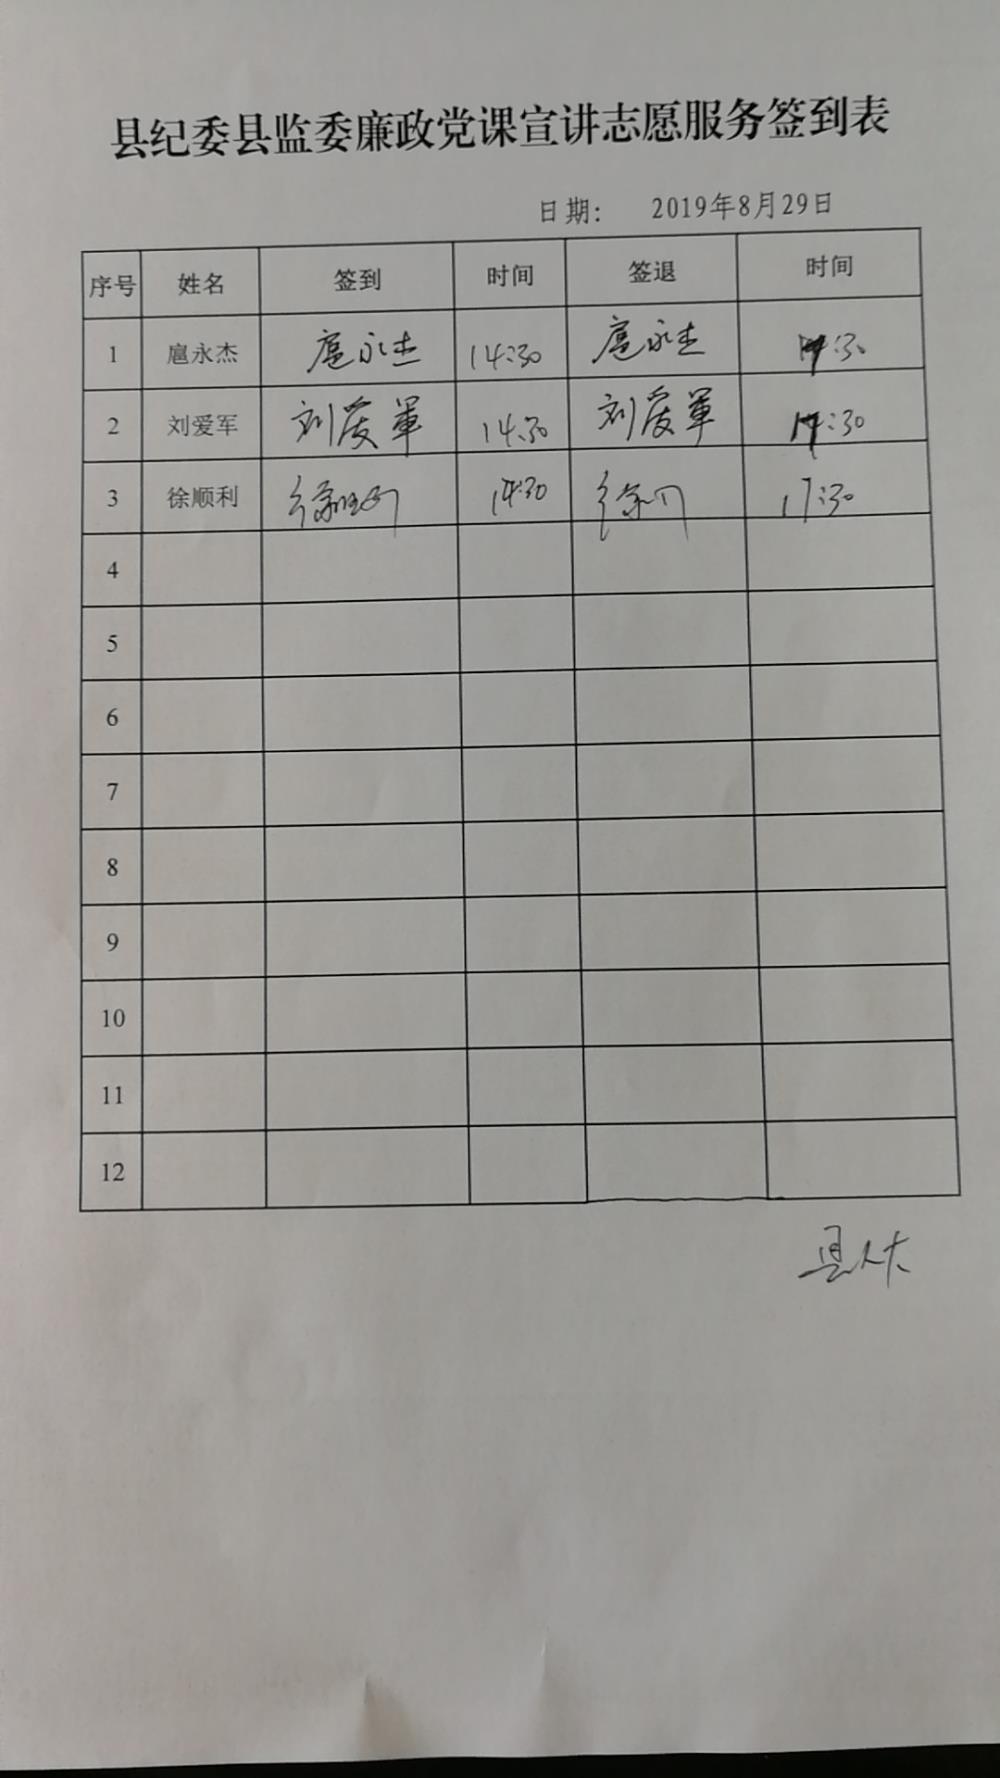 县纪委县监委廉政党课宣讲志愿服务签到表
日期： 2019年8月29日
序号 姓名 签到 时间 签退 时间
1 扈永杰 扈永杰 14:30 扈永杰 17:30
2 刘爱军 刘爱軍 14:30 刘爱軍 17:30
3 徐顺利 徐顺利 14:30 徐 17:30
4
5
6
7
8
9
10
11
12
县人大